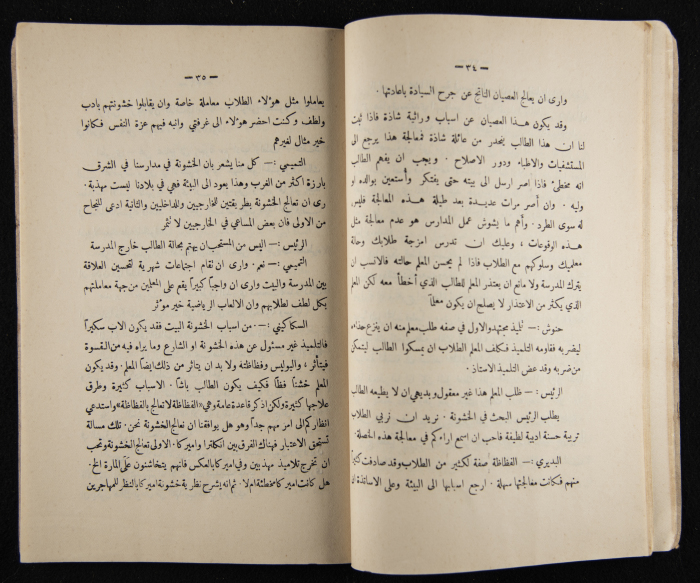 — ٣٤ —
وارى ان يعالج العصيان الناتج عن جرح السيادة باعادتها .
وقد يكون هذا العصيان عن اسباب وراثية شاذة فاذا ثبت
لنا ان هذا الطالب ينحدر من عائلة شاذة فمعالجة هذا يرجع الى
المستشفيات والاطباء ودور الاصلاح . ويجب ان يفهم الطالب
انه مخطئ فاذا اصر ارسل الى بيته حتى يفتكر وأستعين بوالده او
وليه . وان أصر مرات عديدة بعد طيلة هذه المعالجة فليس
له سوى الطرد . وأهم ما يشوش عمل المدارس هو عدم معالجة مثل
هذه الوقوعات ، وعليك ان تدرس امزجة طلابك وحالة
معلميك وسلوكهم مع الطلاب فاذا لم يحسن المعلم حالته فالانسب ان
يترك المدرسة ولا مانع ان يعتذر المعلم للطالب الذي أخطأ معه لكن المعلم
الذي يكثر من الاعتذار لا يصلح ان يكون معلماً
حنوش :— تلميذ مجتهد والاول في صفه طلب معلم منه ان ينزع حذاءه
ليضربه فقاومه التلميذ فكلف المعلم الطلاب ان يمسكوا الطالب ليتمكن
من ضربه وقد عض التلميذ الاستاذ .
الرئيس :— طلب المعلم هذا غير معقول وبديهي ان لا يطيعه الطالب
يطلب الرئيس البحث في الخشونة . نريد ان نربي الطلاب
تربية حسنة ادبية لطيفة فاحب ان اسمع اراءكم في معالجة هذه الخصلة .
البديري :— الفظاظة صفة لكثير من الطلاب وقد صادفت كثيراً
منهم فكانت معالجتها سهلة . ارجع اسبابها الى البيئة وعلى الاساتذة ان
— ٣٥ —
يعاملوا مثل هؤلاء الطلاب معاملة خاصة وان يقابلوا خشونتهم بادب
ولطف وكنت احضر هؤلاء الى غرفتي وانبه فيهم عزة النفس فكانوا
خير مثال لغيرهم
التميمي :— كل منا يشعر بان الخشونة في مدارسنا في الشرق
بارزة اكثر من الغرب وهذا يعود الى البيئة فهي في بلادنا ليست مهذبة .
رى ان تعالج الخشونة بطريقتين للخارجيين والداخليين والثانية ادعى للنجاح
من الاولى فان بعض المساعي في الخارجيين لا تثمر
الرئيس :— اليس من المستحب ان يهتم بحالة الطالب خارج المدرسة
التميمي :— نعم . وارى ان تقام اجتماعات شهرية لتحسين العلاقة
بين المدرسة والبيت وارى ان واجباً كبيراً يقع على المعلمين من جهة معاملتهم
بكل لطف لطلابهم وان الالعاب الرياضية خير مؤثر
السكاكيني :— من اسباب الخشونة البيت فقد يكون الاب سكيراً
فالتلميذ غير مسئول عن هذه الخشونة او الشارع وما يراه فيه من القسوة
فيتأثر ، والبوليس وفظاظته ولا بد ان يتاثر من ذلك ايضاً المعلم . وقد يكون
المعلم خشناً فظاً فكيف يكون الطالب باشاً . الاسباب كثيرة وطرق
علاجها كثيرة ولكن اذكر قاعدة عامة وهي «الفظاظة لا تعالج بالفظاظة» واستدعي
انظاركم الى امر مهم جداً وهو هل يوافقنا ان نعالج الخشونة نحن . تلك مسالة
تستحق الاعتبار فهناك الفرق بين انكلترا واميركا . الاولى تعالج الخشونة وتحب
ان تخرج تلاميذ مهذبين وفي اميركا بالعكس فانهم يتخاشنون على المارة الخ .
هل كانت اميركا مخطئة ام لا . ثم انه يشرح نظرية خشونة اميركا بالنظر للمهاجرين